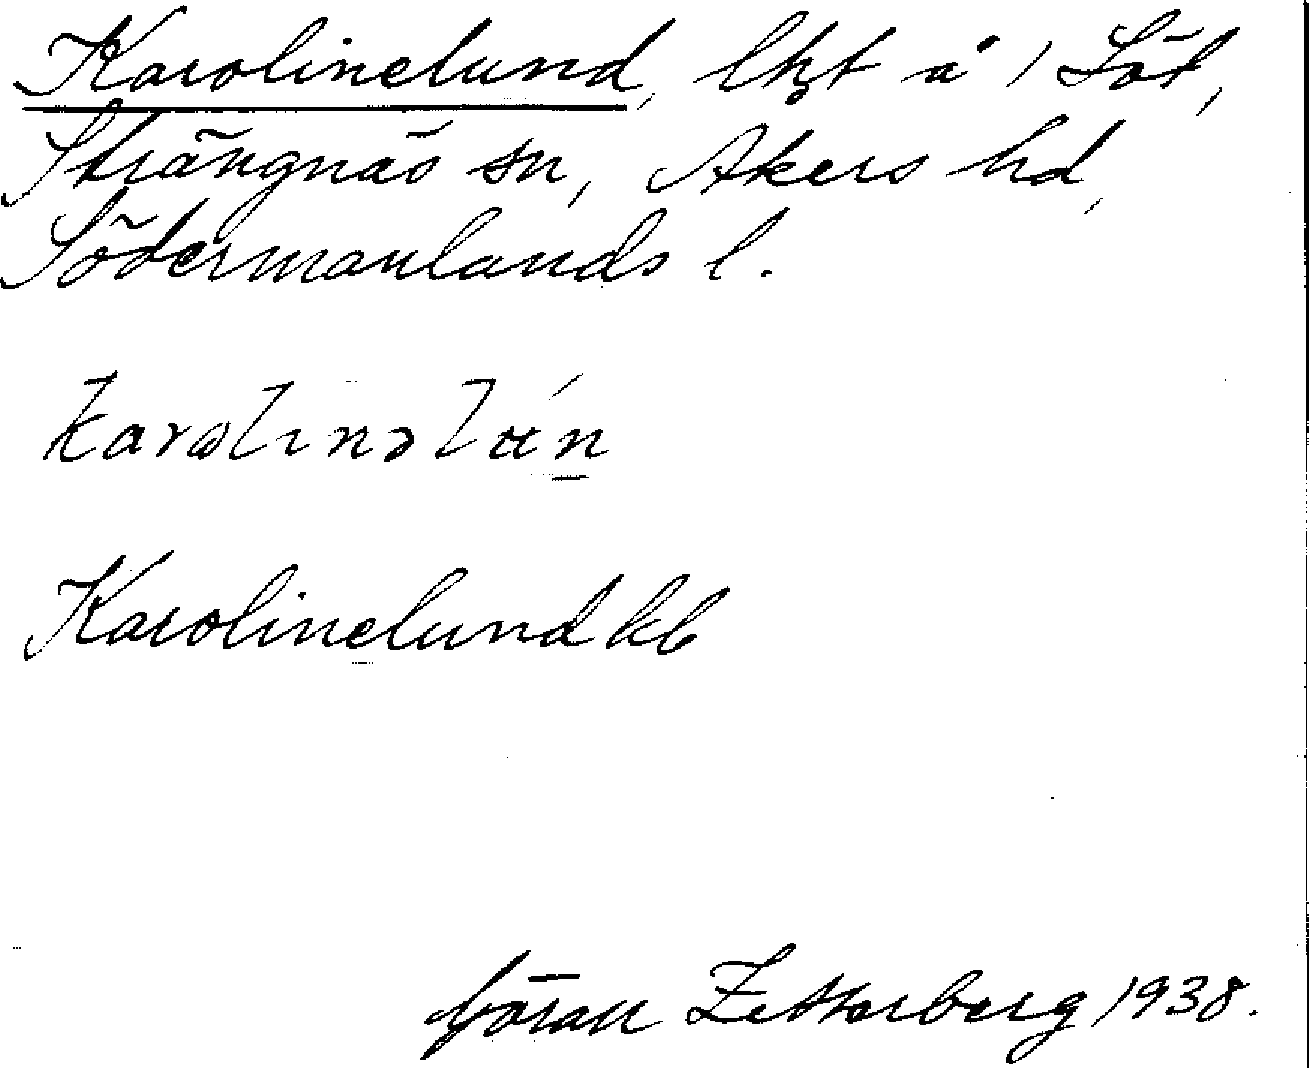 Karolinelund, lht å 1 Söt,
Strängnäs sn, Åkers hd,
Södermanlands l.
karolinəlʉ́n
Karolinelund kb
Göran Zetterberg 1938.